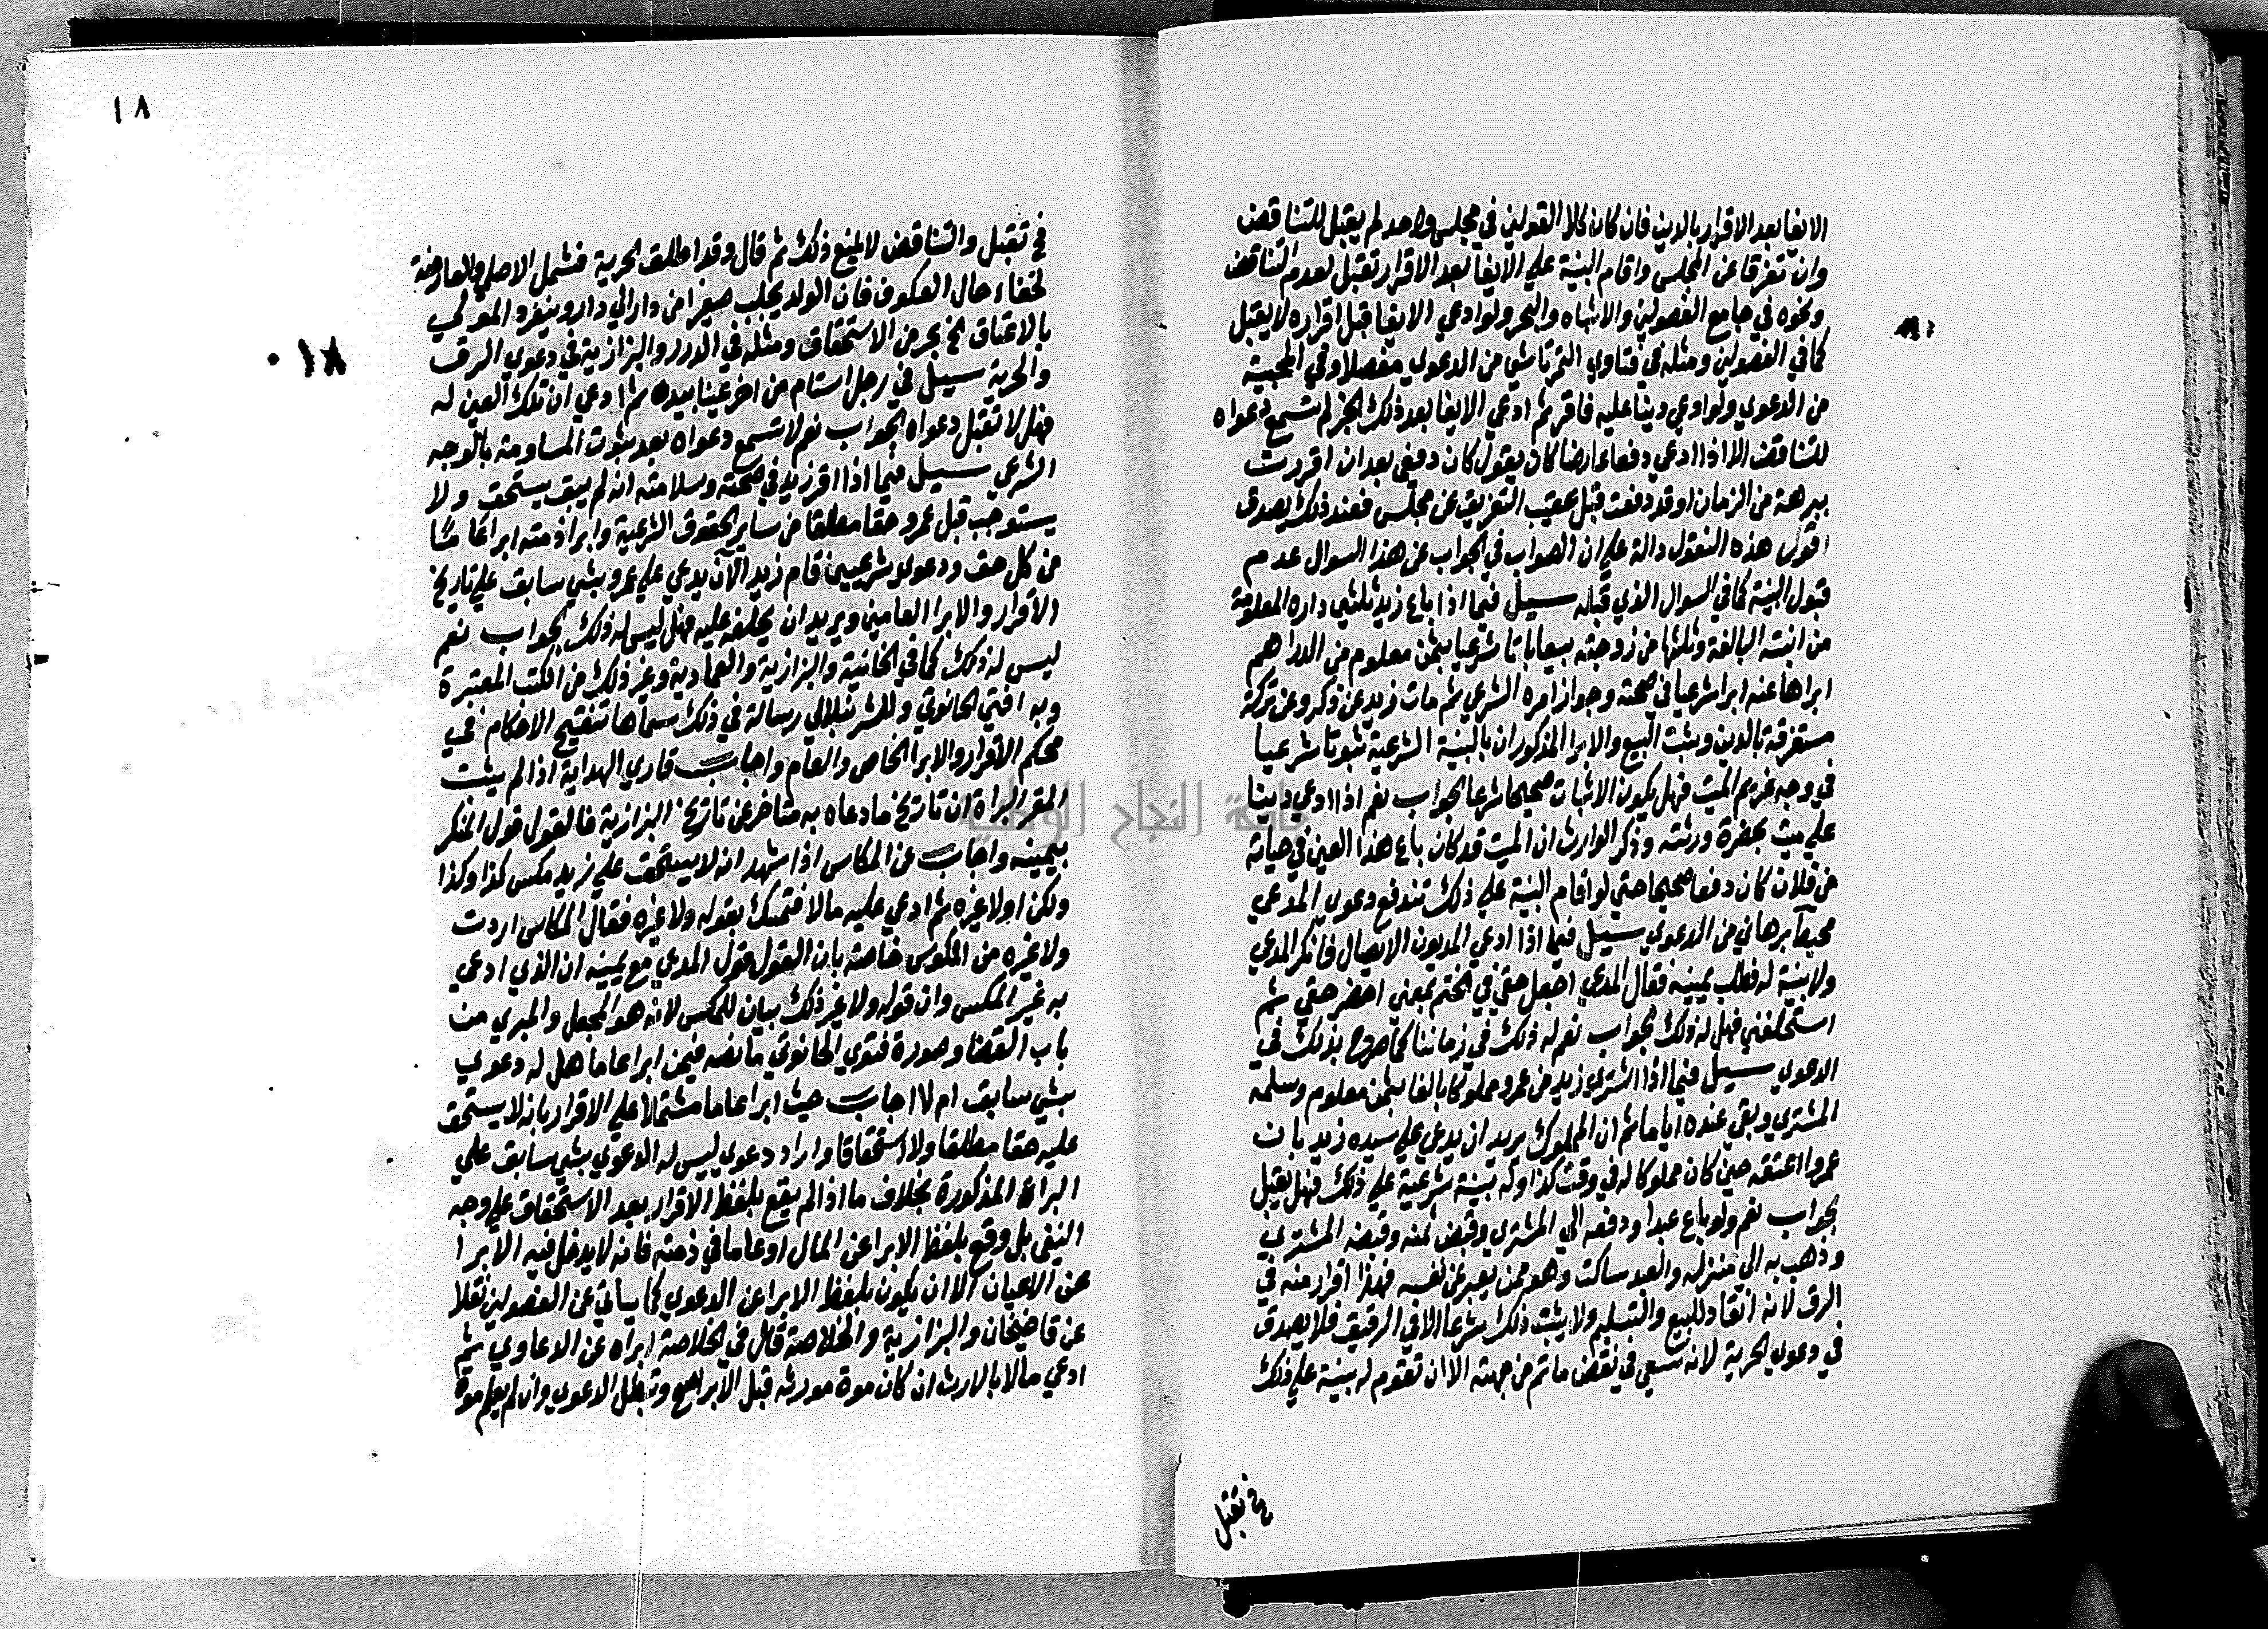 الايفا بعد الاقرار بالدين فان كان كلا القولين في مجلس واحد لم يقبل للتناقض
وان تفرقا عن المجلس واقام البينة علي الايفا بعد الاقرار تقبل لعدم التناقض
ونحوه في جامع الفصولين والاشباه والبحر ولو ادعي الايفا قبل اقراره لا يقبل
كما في الفصولين ومثله في فتاوي التمرتاشي من الدعوي مفصلا وفي المحبية
من الدعوي ولو ادعي دينا عليه فاقر ثم ادعي الايفا بعد ذلك الخبر لم تسمع دعواه
للتناقض الا اذا ادعي دفعا عارضا كان يقول كان دفعي بعد ان اقررت
ببرهة من الزمان او قد دفعت قبل عقيب التفريق عن مجلس فعند ذلك يصدق
اقول هذه النقول دالة علي ان الصواب في الجواب عن هذا السوال عدم
قبول البينة كما في السوال الذي قبله سيل فيما اذا باع زيد ثلثي داره المعلومة
من ابنته البالغة وثلثها من زوجته بيعا باتا شرعيا بثمن معلوم من الدراهم
ابراها عنه ابرا شرعيا في صحته وجواز امره الشرعي ثم مات زيد عن ذكر وعن تركة
مستغرقة بالدين وثبت البيع والابرا المذكوران بالبينة الشرعية ثبوتا شرعيا
في وجه غريم الميت فهل يكون الاثبات صحيحا شرعا الجواب نعم اذا ادعي دينا
علي ميت بحضرة ورثته وذكر الوارث ان الميت قد كان باع هذا العين في حياته
من فلان كان دفعا صحيحا حتي لو اقام البينة علي ذلك تندفع دعوي المدعي
محيط برهاني من الدعوي سيل فيما اذا ادعي المديون الايصال فانكر المدعي
ولا بينة له فطلب يمينه فقال المدعي اجعل حقي في الختم بمعني احضر حقي ثم
استحلفني فهل له ذلك الجواب نعم له ذلك في زماننا كما صرح بذلك في
الدعوي سيل فيما اذا اشتري زيد من عمرو مملوكا بالغا بثمن معلوم وسلمه
المشتري وبقي عنده اياما ثم ان المملوك يريد ان يدعي علي سيده زيد بان
عمروا اعتقه حين كان مملوكا له في وقت كذا وله بينة شرعية علي ذلك فهل يقبل
الجواب نعم ولو باع عبدا ودفعه الي المشتري وقبض ثمنه وقبضه المشتري
وذهب به الي منزله والعبد ساكت وهو ممن يعبر عن نفسه فهذا اقرار منه في
الرق لانه انقاد للبيع والتسليم ولا يثبت ذلك شرعا الا في الرقيق فلا يصدق
في دعوي الحرية لانه سعي في نقض ما تم من جهته الا ان تقوم له بينة علي ذلك
تقبل
١٨
٠١٨
تقبل والتناقض لا يمنع ذلك ثم قال وقد اطلق الحرية فشمل الاصلي والعارضة
لخفاء حال العكوف فان الولد يجلب صغيرا من دار الي دار وينفرد المولي
بالاعتاق الخ بحر من الاستحقاق ومثله في الدرر والبزازية في دعوي الرق
والحرية سيل في رجل استام من اخر عينا بيده ثم ادعي ان تلك العين له
فهل لا تقبل دعواه الجواب نعم لا تسمع دعواه بعد ثبوت المساومة بالوجه
الشرعي سيل فيما اذا اقر زيد في صحته وسلامته انه لم يبق يستحق ولا
يستوجب قبل عمرو حقا مطلقا من ساير الحقوق الشرعية وابرا ذمته ابرا عاما
من كل حق ودعوي شرعيين قام زيد الآن يدعي علي عمرو بشي سابق علي تاريخ
الاقرار والابرا العامين ويريد ان يحلفه عليه فهل ليس له ذلك الجواب نعم
ليس له ذلك كما في الخانية والبزازية والعمادية وغير ذلك من الكتب المعتبرة
وبه افتي الحانوتي وللشرنبلالي رسالة في ذلك سماها تنقيح الاحكام في
حكم الاقرار والابرا الخاص والعام واجاب قاري الهداية اذا لم يثبت
المقر البراة ان تاريخ ما دعاه به متاخر عن تاريخ البزازية فالقول قول المنكر
بيمينه واجاب عن المكاس اذا شهد انه لا يستحق علي زيد مكس كذا وكذا
ولكن اولا غيره ثم ادعي عليه مالا فتمسك بقوله ولا غيره فقال المكاس اردت
ولا غيره من المكوس خاصة بان القول قول المدعي مع يمينه ان الذي ادعي
به غير المكس وان قوله ولا غير ذلك بيان للمكس لانه هو المجمل والمبري من
باب القضا وصورة فتوي الحانوتي ما نصه فيمن ابرا عاما هل له دعوي
بشي سابق ام لا اجاب حيث ابرا عاما مشتملا علي الاقرار بانه لا يستحق
عليه حقا مطلقا ولا استحقاقا واراد دعوي ليس له الدعوي بشي سابق علي
البراة المذكورة بخلاف ما اذا لم يقع بلفظ الاقرار بعد الاستحقاق علي وجه
النفي بل وقع بلفظ الابرا عن المال او عاما في ذمته فانه لا يدخل فيه الابرا
عن الاعيان الا ان يكون بلفظ الابرا عن الدعوي كما ياتي عن الفصولين نقلا
عن قاضيخان والبزازية والخلاصة قال في الخلاصة ابراه عن الدعاوي ثم
ادعي مالا بالارث ان كان موت مورثه قبل الابرا صح وتبطل الدعوي وان لم يعلم موت